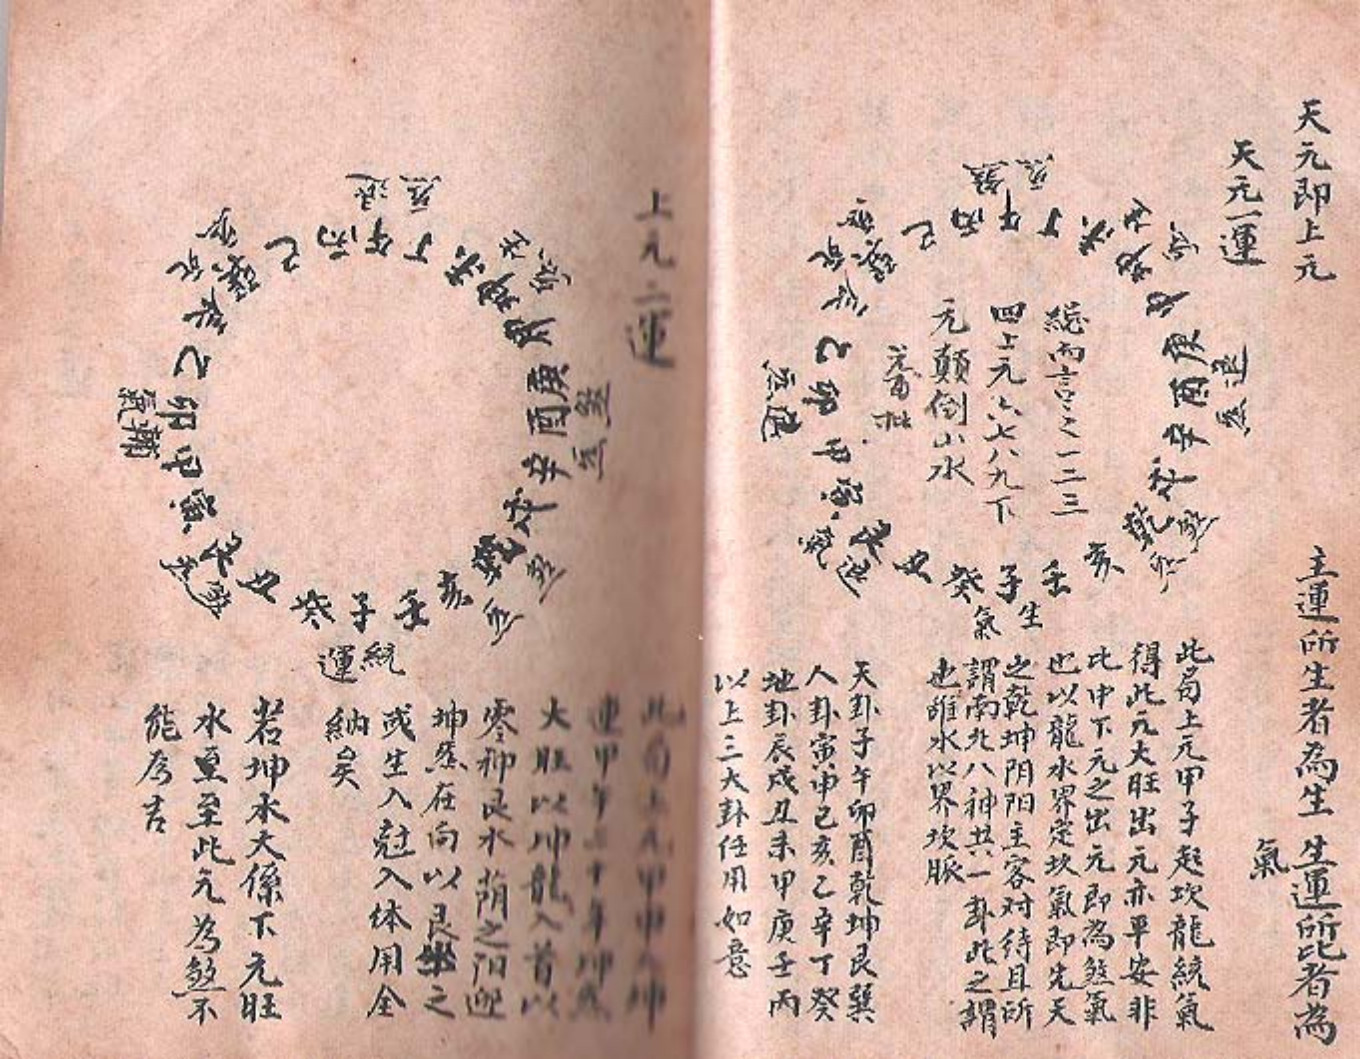 天元即上元
主運所生者為生
生運所比者為
氣
天元一運
總而言之一二三
四上元六七八九下
元顛倒山水
丙午丁未坤申庚酉辛戌乾亥壬子癸丑艮寅甲卯乙辰巽巳
煞
退
煞
生
氣
退
氣
此局上元甲子起坎龍統氣
得此元大旺出元亦平安非
比中下元之出元即為煞氣
也以龍水界定坎氣即先天
之乾坤阴阳主客对待且所
謂南北八神共一卦此之謂
也誰水以界坎脈
天卦子午卯酉乾坤艮巽
人卦寅申巳亥乙辛丁癸
地卦辰戌丑未甲庚壬丙
以上三大卦任用如意
上元二運
丙午丁未坤申庚酉辛戌乾亥壬子癸丑艮寅甲卯乙辰巽巳
退
煞
統
運
此局上元甲申起坤
運甲午二十年坤炁
大旺以坤龍入首以
零神艮水荫之阳迎
坤炁在向以艮坐之
或生入尅入体用全
納矣
若坤水大係下元旺
水重至此元為煞不
能為吉